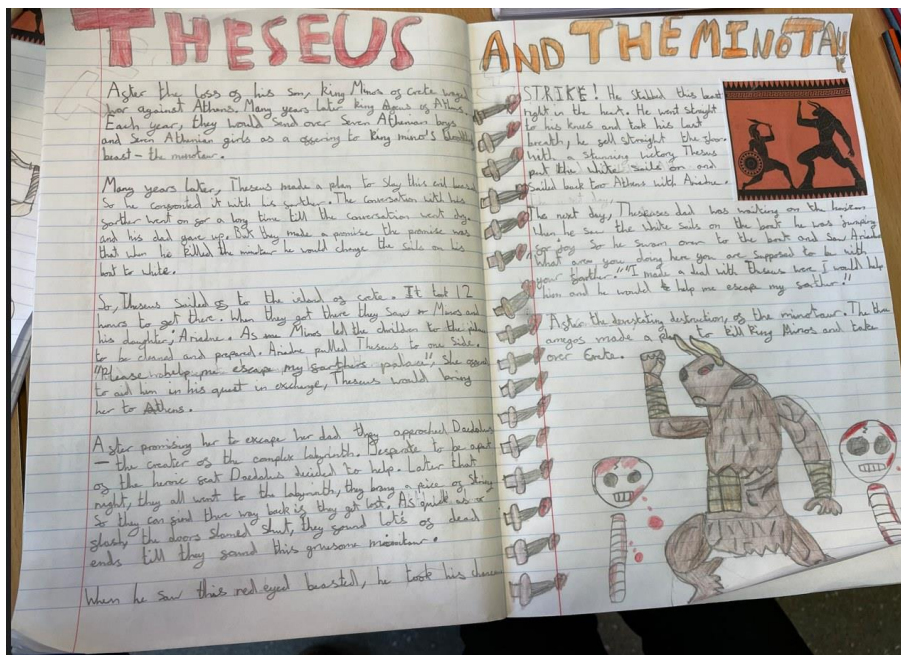 THESEUS
After the loss of his son, king Minos of Crete waged
war against Athens. Many years later king Ageus of Athens.
Each year, they would send over Seven Athenian boys
and Seven Athenian girls as a offering to King minor's
beast – the monotaur.
Many years later, Theseus made a plan to Slay this evil beast
So he confronted it with his farther. The conversation with his
farther went on for a long time till the conversation went dry
and his dad gave up. But they made a promise the promise was
that when he killed the he would change the sails on his
boat to white.
So, Theseus Sailed of to the island of crete. It tot 12
hours to get there. When they got there they Saw Minos and
his daughter, Ariadne. As Minos led the children to the palace
to be cleaned and prepared. Ariadne pulled Theseus to one side.
"Please help me escape my farthers palace", She offered
to aid him in his quest in exchange, Theseus would bring
her to Athens.
After promising her to excape her dad they approached Daedalus
– the creater of the complex labyrinth. Desperate to be apart
of the heroic feat Daedalus decided to help. Later that
night, they all went to the labyrinth, they bring a piece of String
So they can find there way back if they get lost. As quick as a
flash, the doors slamed shut, they found lot's of dead
ends till they found this gruesome
When he saw this red eyed , he took his chance
AND THE MINOTAUR
STRIKE! He stabbed this beast
right in the heart. He went straight
to his knees and took his last
breath, he fell straight the floor.
With a stunning victory Thesus
put the white sails on and
Sailed back too Athens with Ariadne.
The next day, dad was waiting on the
When he saw the white sails on the boat he was jumping
for joy. So he swam over to the boat and saw
"What are you doing here you are supposed to be with
your farther." "I made a deal with Theseus were I would help
him and he would help me escape my farther."
After the devastating destruction of the minotaur. The three
amegos made a plan to kill King Minos and take
over Crete.